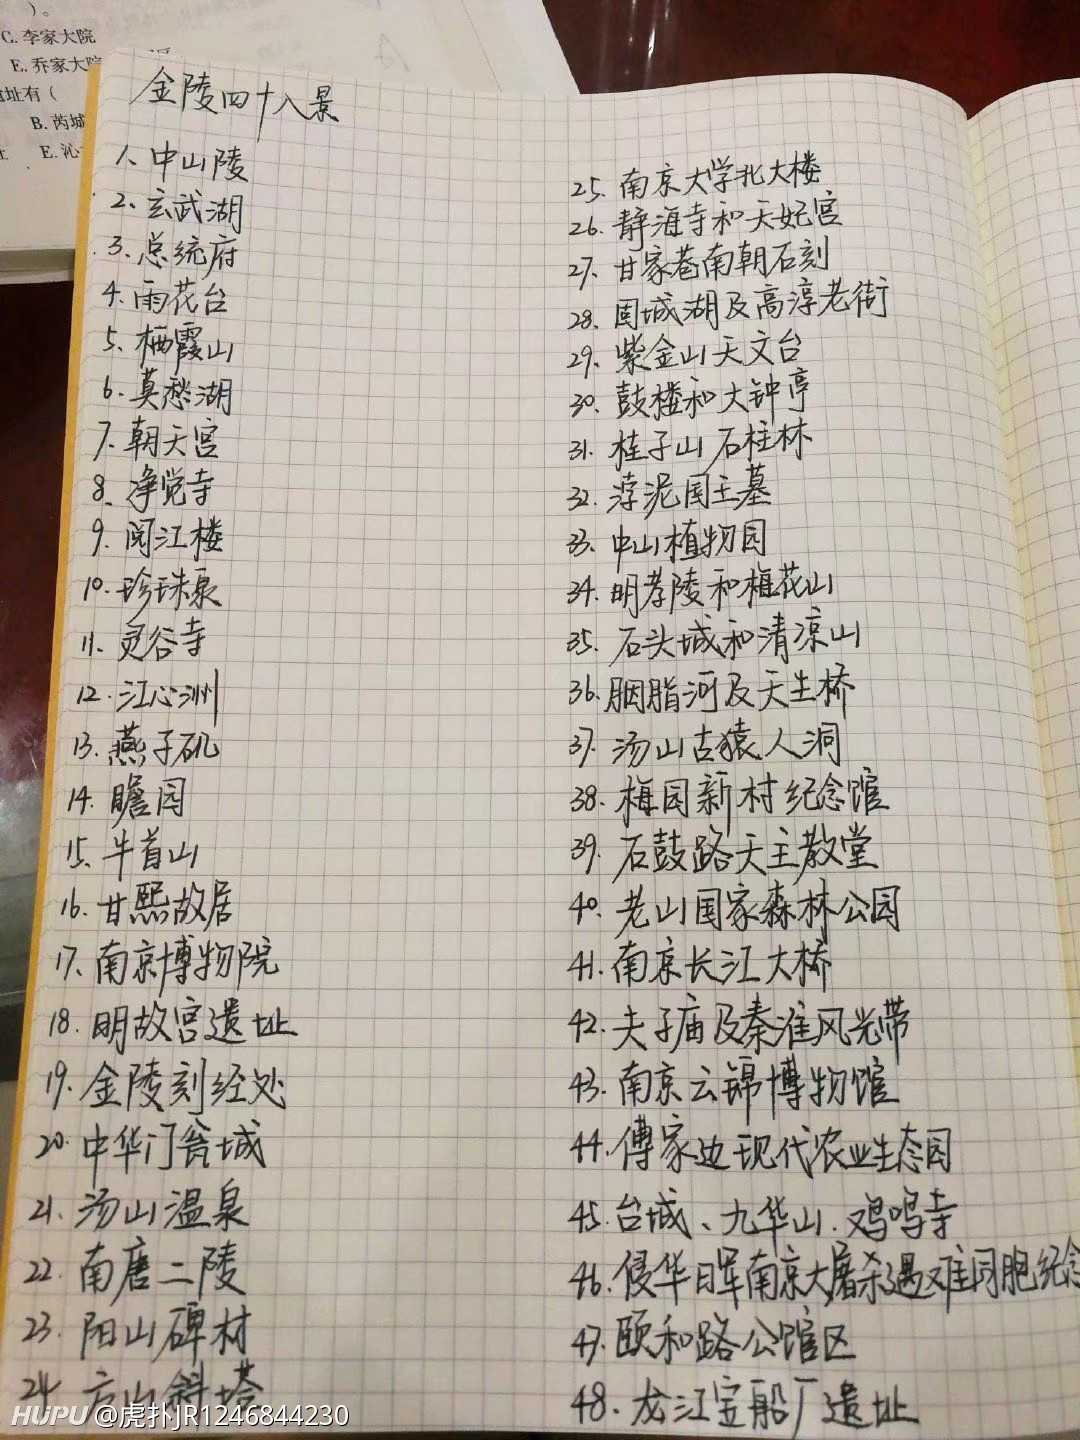 )。
C. 李家大院
E. 乔家大院
遗址有（
B. 芮城
E. 沁
金陵四十八景
1、中山陵
2、玄武湖
3、总统府
4、雨花台
5、栖霞山
6、莫愁湖
7、朝天宫
8、净觉寺
9、阅江楼
10、珍珠泉
11、灵谷寺
12、江心洲
13、燕子矶
14、瞻园
15、牛首山
16、甘熙故居
17、南京博物院
18、明故宫遗址
19、金陵刻经处
20、中华门瓮城
21、汤山温泉
22、南唐二陵
23、阳山碑材
24、方山斜塔
25、南京大学北大楼
26、静海寺和天妃宫
27、甘家巷南朝石刻
28、固城湖及高淳老街
29、紫金山天文台
30、鼓楼和大钟亭
31、桂子山石柱林
32、浡泥国王墓
33、中山植物园
34、明孝陵和梅花山
35、石头城和清凉山
36、胭脂河及天生桥
37、汤山古猿人洞
38、梅园新村纪念馆
39、石鼓路天主教堂
40、老山国家森林公园
41、南京长江大桥
42、夫子庙及秦淮风光带
43、南京云锦博物馆
44、傅家边现代农业生态园
45、台城、九华山、鸡鸣寺
46、侵华日军南京大屠杀遇难同胞纪念
47、颐和路公馆区
48、龙江宝船厂遗址
HUPU @虎扑JR1246844230